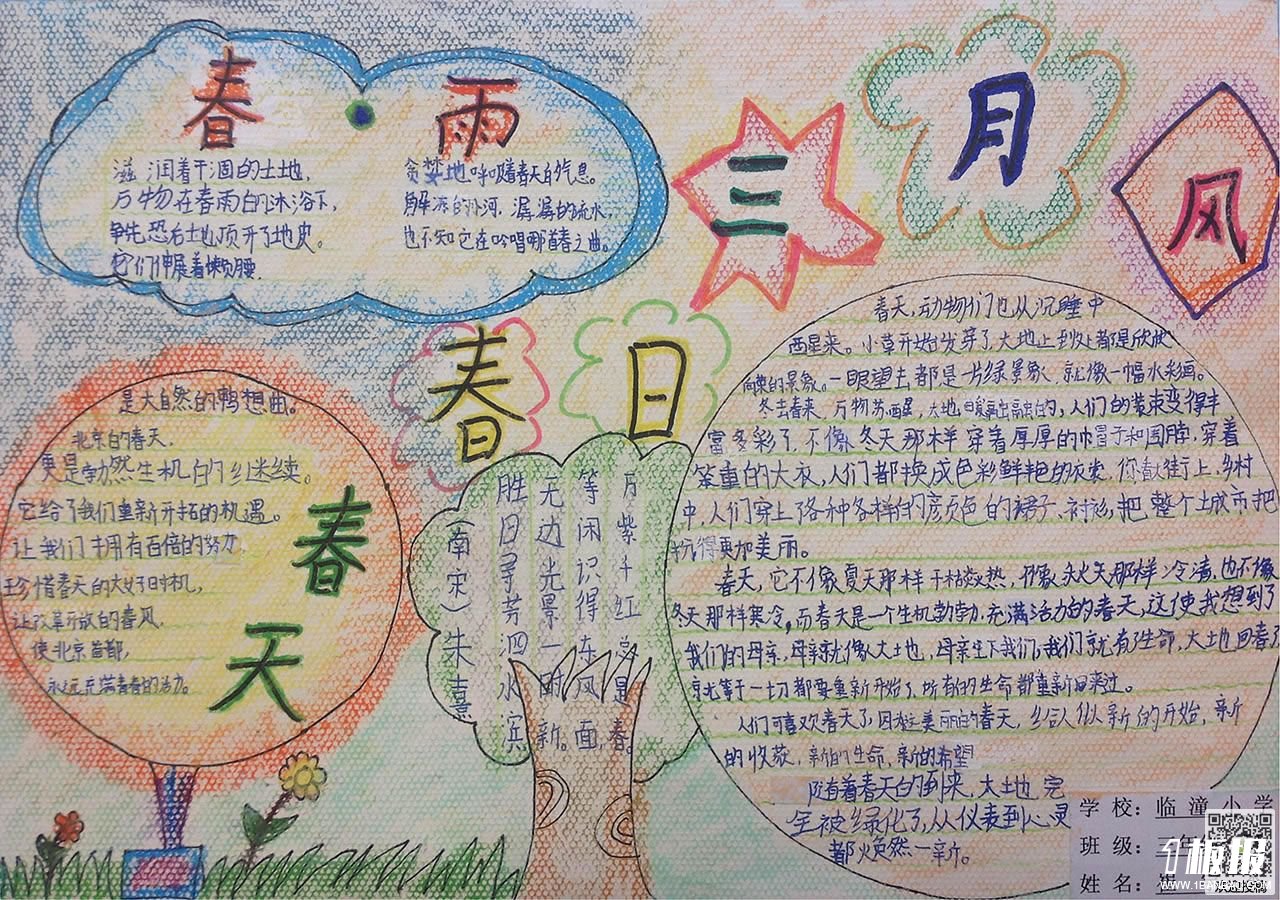 春·雨
滋润着干涸的土地,
万物在春雨的沐浴下,
争先恐后地顶开了地皮。
它们伸展着懒腰.
贪婪地呼吸着春天的气息。
解冻的小河,潺潺的流水,
也不知它在吟唱哪首春之曲。
三月风
春日
胜日寻芳泗水滨
无边光景一时新。
等闲识得东风面,
万紫千红总是春。
(南宋)朱熹
春天
是大自然的鸭想曲。
北京的春天,
更是勃然生机的继续。
它给了我们重新开拓的机遇。
让我们拥有百倍的努力,
珍惜春天的大好时机,
让改革开放的春风,
使北京首都,
永远充满青春的活力。
春天,动物们也从沉睡中
西星来。小草开始发芽了大地上到处都是欣欣
向荣的景象。一眼望去都是一片绿景象,就像一幅水彩画。
冬去春来,万物苏西星,大地暖融融的,人们的装束变得丰
富多彩了,不像冬天那样穿着厚厚的帽子和围脖,穿着
笨重的大衣,人们都换成色彩鲜艳的衣裳,你看大街上,乡村
中,人们穿上了各种各样的颜色的裙子、衬衫,把整个城市把
扮得更加美丽。
春天,它不像夏天那样干枯炎热,不像秋天那样冷清,也不像
冬天那样寒冷,而春天是一个生机勃勃,充满活力的春天,这使我想到了
我们的母亲,母亲就像大土地,母亲生下我们,我们就有了生命,大土地回春,
就等于一切都要重新开始了,所有的生命都重新回来过。
人们可喜欢春天了,因为这美丽的春天,给人似新的开始,新
的收获,新的生命,新的希望
随着春天的到来,大地完
全被绿化了,从仪表到心灵
都焕然一新。
学校:临潼小学
班级:二年
姓名:
1板报
WWW.1BANBAO.COM